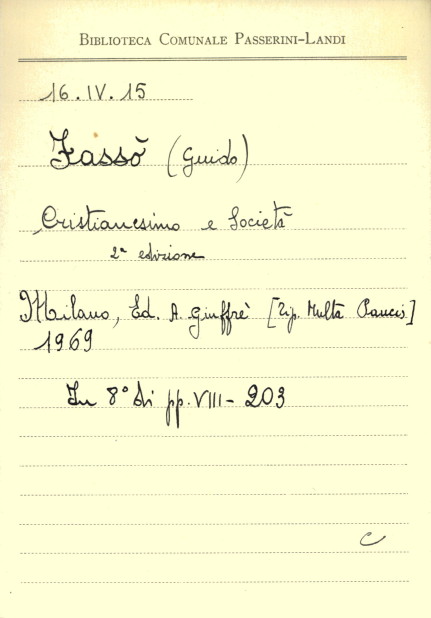 BIBLIOTECA COMUNALE PASSERINI-LANDI
16.IV.15
Fassò (Guido)
Cristianesimo e Società
2ª edizione
Milano, Ed. A. Giuffrè [Tip. Multa Paucis]
1969
In 8° di pp. VIII - 203
C